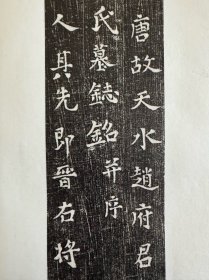 唐故天水趙府君
氏墓誌銘并序
人其先即晉右將